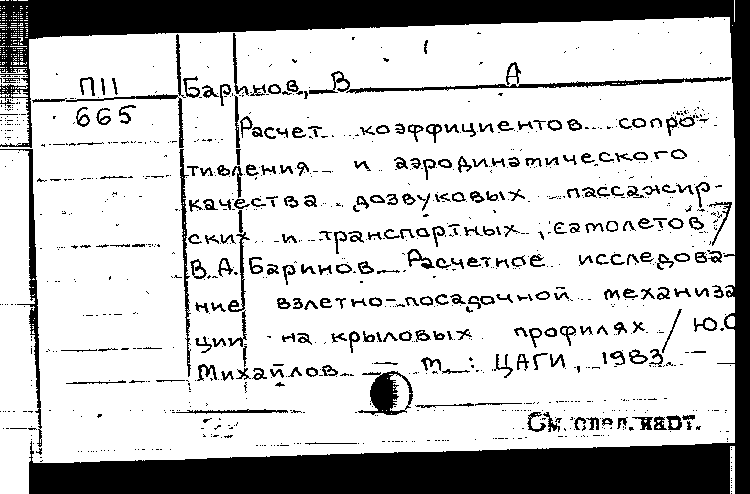 П11
665
Баринов, В А
Расчет коэффициентов сопро-
тивления и аэродинамического
качества дозвуковых пассажир-
ских и транспортных самолетов /
В.А. Баринов. Расчетное исследова-
ние взлетно-посадочной механиза
ции на крыловых профилях / Ю.С
Михайлов. — М. : ЦАГИ, 1983. —
См. след. карт.